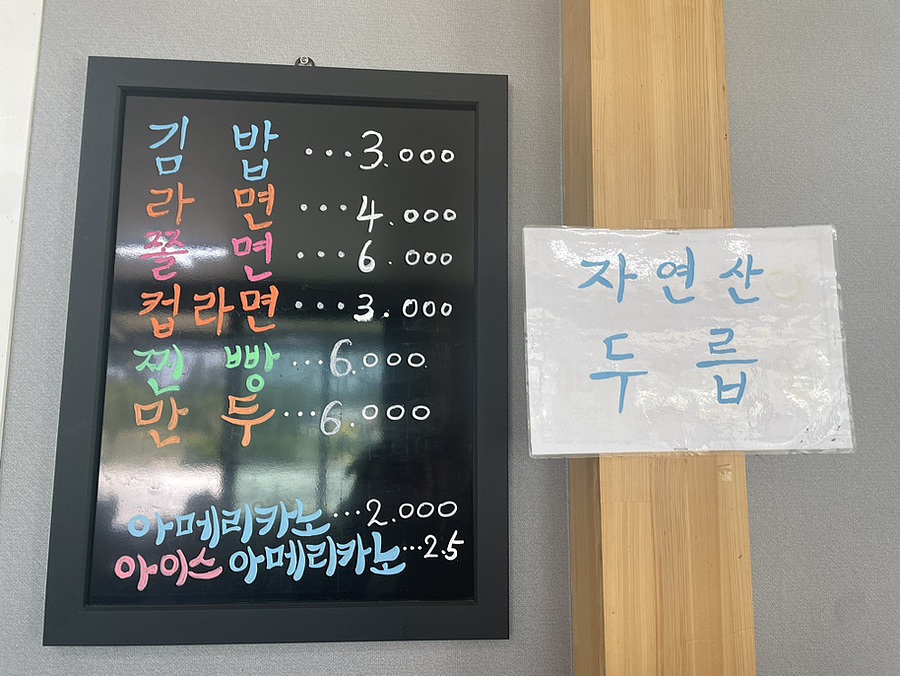 김 밥 ...3.000
라 면 ...4.000
쫄 면 ...6.000
컵라면 ...3.000
찐 빵 ...6.000
만 두 ...6.000
아메리카노 ...2.000
아이스 아메리카노 ...2.5
자연산
두릅